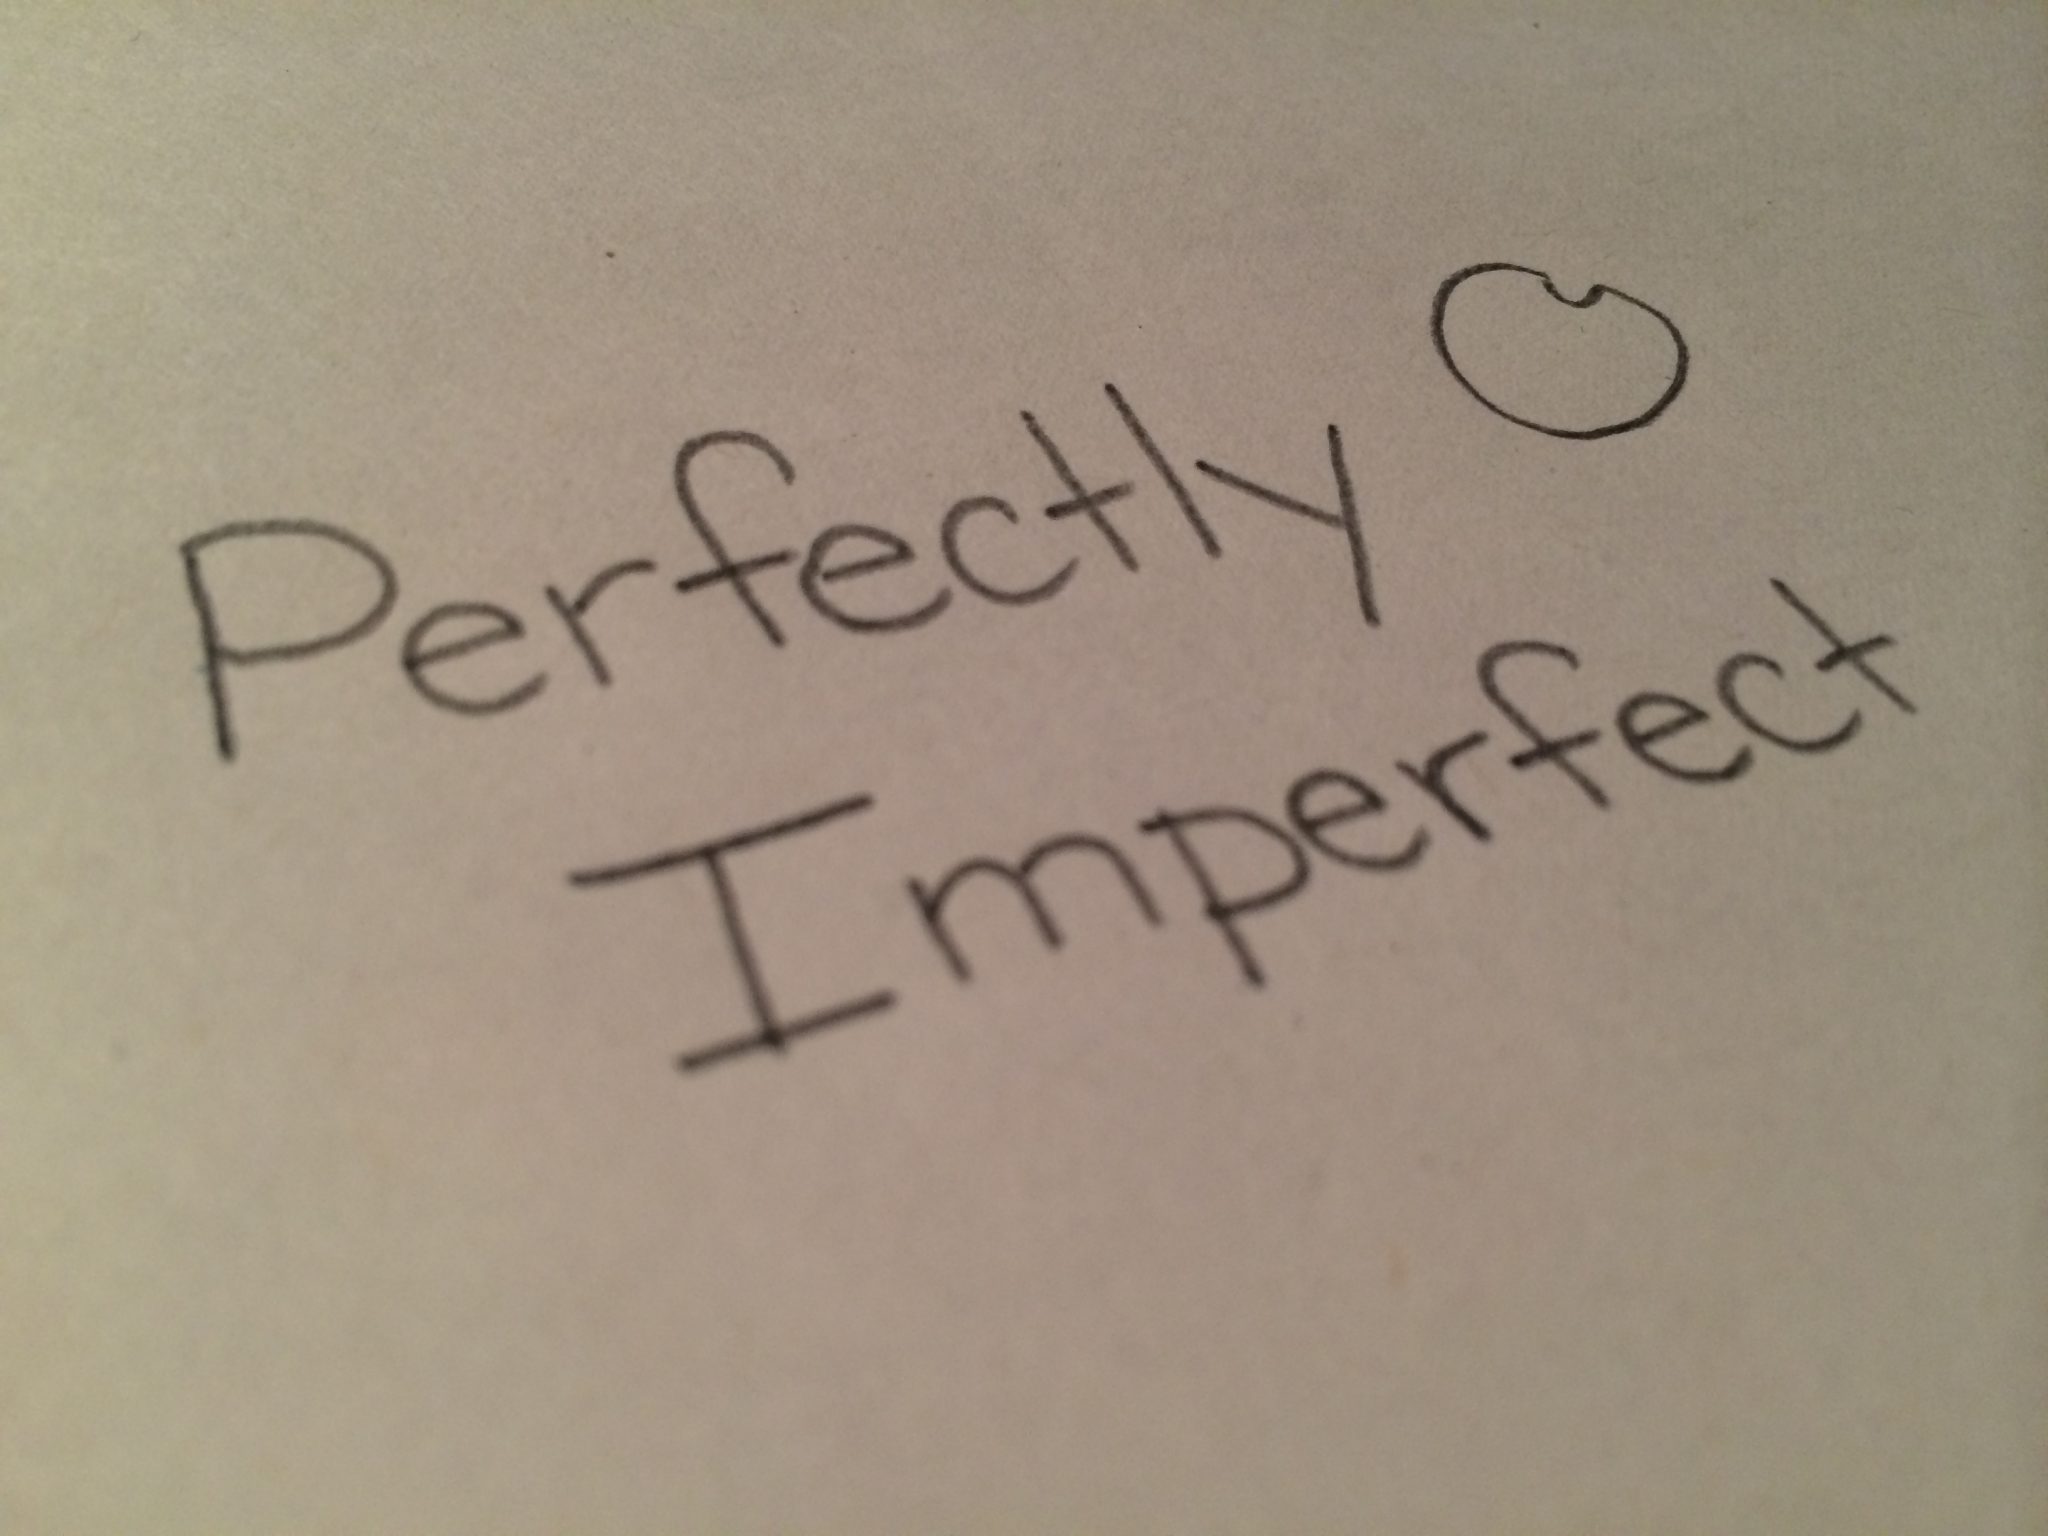 Perfectly
Imperfect